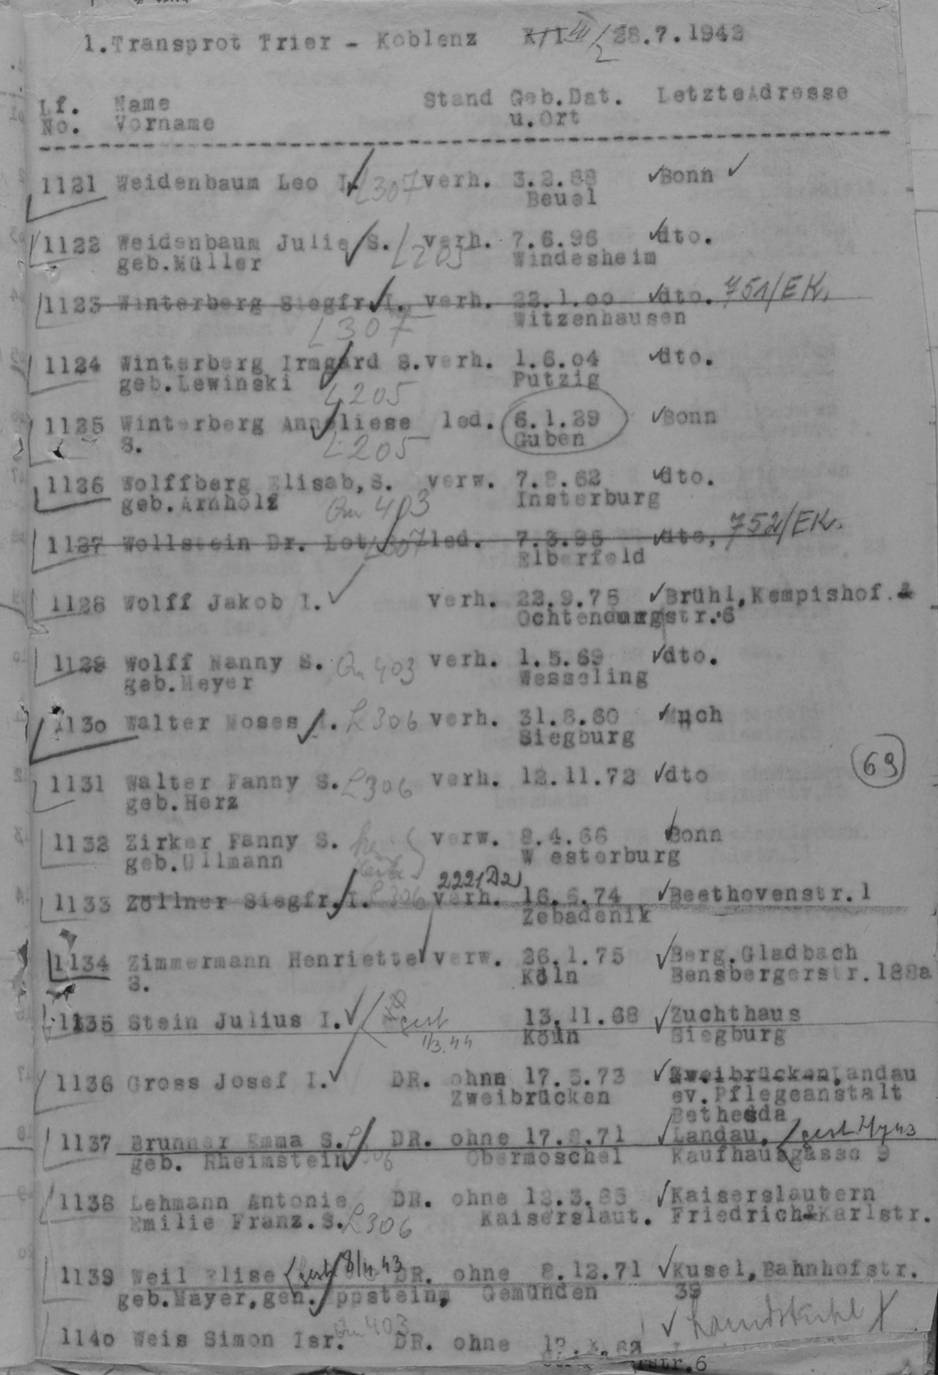 1.Transprot Trier - Koblenz XII III/2 28.7.1942
Lf. Name Stand Geb.Dat. LetzteAdresse
No. Vorname u.Ort
1121 Weidenbaum Leo I. L307 verh. 3.2.88 Bonn
Beuel
1122 Weidenbaum Julie S. L205 verh. 7.6.96 dto.
geb.Müller Windesheim
1123 Winterberg Siegfr. I. verh. 22.1.00 dto. 751/EK.
L307 Witzenhausen
1124 Winterberg Irmgard S. verh. 1.6.04 dto.
geb.Lewinski L205 Putzig
1125 Winterberg Anneliese led. 6.1.29 Bonn
S. L205 Guben
1126 Wolffberg Elisab, S. verw. 7.8.62 dto.
geb.Arnholz 403 Insterburg
1127 Wollstein Dr. Lot L307 led. 7.3.95 dto, 752/EK.
Elberfeld
1128 Wolff Jakob I. verh. 22.9.75 Brühl,Kempishof.&
Ochtendung str.6
1129 Wolff Nanny S. 403 verh. 1.5.69 dto.
geb.Meyer Wesseling
1130 Walter Moses I. L306 verh. 31.8.60 Much
Siegburg
69
1131 Walter Fanny S. L306 verh. 12.11.72 dto
geb.Herz
1132 Zirker Fanny S. verw. 8.4.66 Bonn
geb.Ullmann Westerburg
2221 D2
1133 Zöllner Siegfr. I. L306 verh. 16.6.74 Beethovenstr.1
Zebadenik
1134 Zimmermann Henriette verw. 26.1.75 Berg.Gladbach
S. Köln Bensbergerstr.188a
1135 Stein Julius I. gest 13.11.68 Zuchthaus
1/3.44 Köln Siegburg
1136 Gross Josef I. DR. ohne 17.5.73 Zweibrücken,Landau
Zweibrücken ev.Pflegeanstalt
Bethesda
1137 Brunner Emma S. DR. ohne 17.8.71 Landau, gest
geb. Rheimstein Obermoschel Kaufhausgasse 9
1138 Lehmann Antonie DR. ohne 12.3.85 Kaiserslautern
Emilie Franz.S. L306 Kaiserslaut. Friedrich&Karlstr.
1139 Weil Elise gest 8/4 43 DR. ohne 8.12.71 Kusel,Bahnhofstr.
geb.Mayer,gen. Ippstein, Gemünden 39
Landstuhl
1140 Weis Simon Isr. 403 DR. ohne
str.6